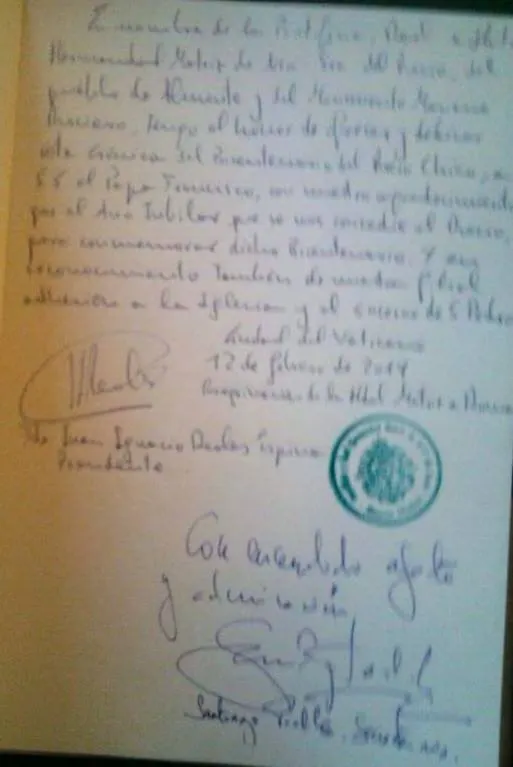 En nombre de la Pontificia, Real e Ilustre
Hermandad Matriz de Ntra Sra del Rocío, del
pueblo de Almonte y del Movimiento Mariano
Rociero, tengo el honor de ofrecer y dedicar
esta Crónica del Bicentenario del Rocío Chico, a
SS el Papa Francisco, con nuestro agradecimiento
por el Año Jubilar que se nos concedió al Rocío,
para conmemorar dicho Bicentenario. Y en
reconocimiento también de nuestra filial
adhesión a la Iglesia y al sucesor de S Pedro
Ciudad del Vaticano
12 de febrero de 2014
de la Hdad Matriz
Juan Ignacio Reales Espina
Presidente
Con encendido afecto
y admiración
Santiago